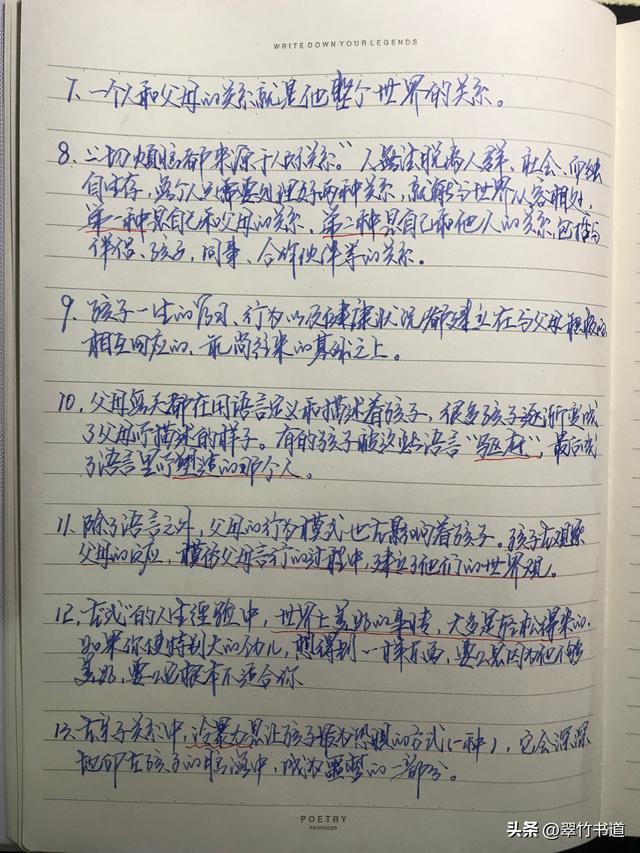 WRITE DOWN YOUR LEGENDS
7、一个人和父母的关系就是他整个世界的关系。
8、"一切烦恼都来源于人际关系。"人无法脱离人群、社会、而独
自生存,每个人只需要处理好两种关系,就能与世界从容相处,
第一种是自己和父母的关系,第二种是自己和他人的关系,包括与
伴侣、孩子,同事、合作伙伴等的关系。
9、孩子一生的习、行为以及健康状况都建立在与父母积极的
相互回应的、礼尚往来的基础之上。
10、父母每天都在用语言定义和描述着孩子,很多孩子逐渐变成
了父母所描述的样子。有的孩子被这些语言"驱赶",最后成
了语言里所塑造的那个人。
11、除了语言之外,父母的行为模式也在影响着孩子。孩子在观察
父母的反应,模仿父母言行的过程中,建立了他们的世界观。
12、式"的人生经验中,世界上美好的事情,大多是轻松得来的。
如果你使特别大的劲儿,想得到一样东西,要么是因为他不够
美好,要么它根本不适合你
13、在亲子关系中,冷暴力是让孩子最为恐惧的方式(一种),它会深深
地印在孩子的脑海中,成为噩梦的一部分。
POETRY
PRODUCED
头条@翠竹书道